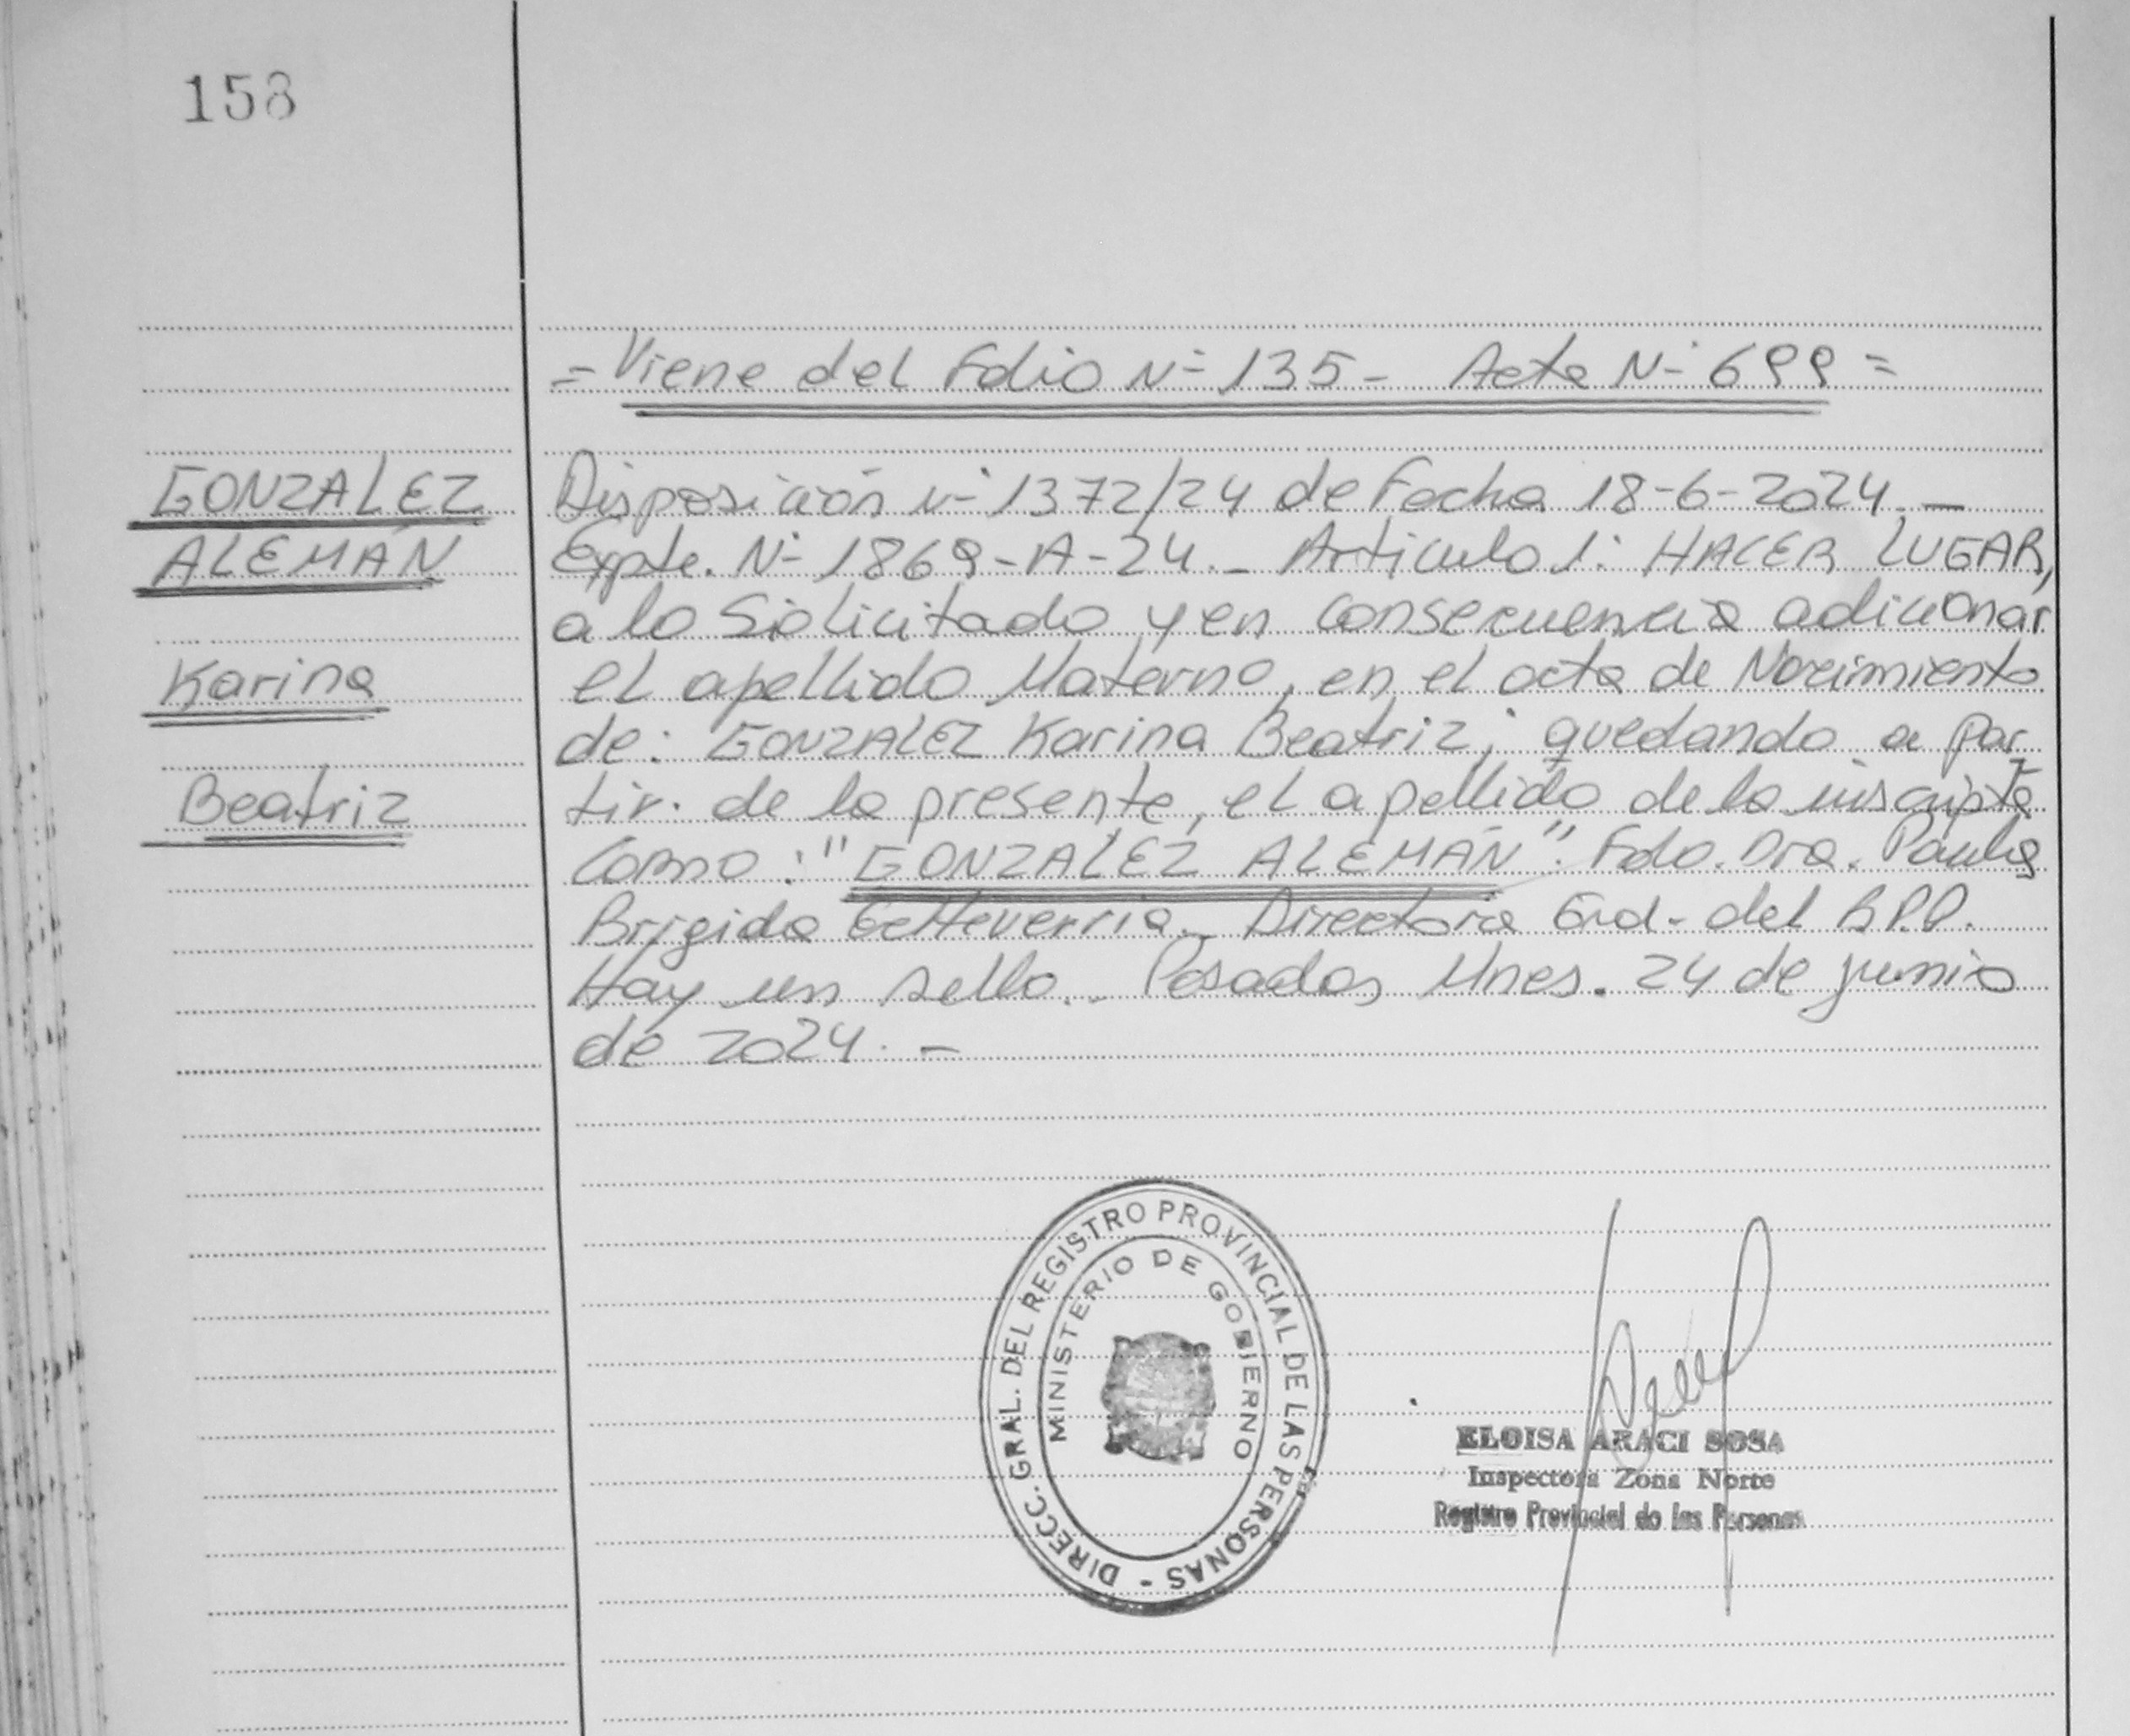 158
= Viene del Folio Nº 135 - Acta Nº 699 =
GONZALEZ
ALEMÁN
Karina
Beatriz
Disposición nº 1372/24 de Fecha 18-6-2024. —
Expte. Nº 1869-A-24. - Articulo 1: HACER LUGAR,
a lo Solicitado y en consecuencia adicionar
el apellido Materno, en el acta de Nacimiento
de: GONZALEZ Karina Beatriz; quedando a par
tir. de la presente, el apellido de la inscipta
como: "GONZALEZ ALEMÁN". Fdo. Dra. Paula
Brigida Echeverria. Directora Gral. del R.P.P.
Hay un sello. Posadas Mnes. 24 de junio
de 2024. -
DIRECC. GRAL. DEL REGISTRO PROVINCIAL DE LAS PERSONAS -
MINISTERIO DE GOBIERNO
ELOISA ARACI SOSA
Inspectora Zona Norte
Registro Provincial de las Personas